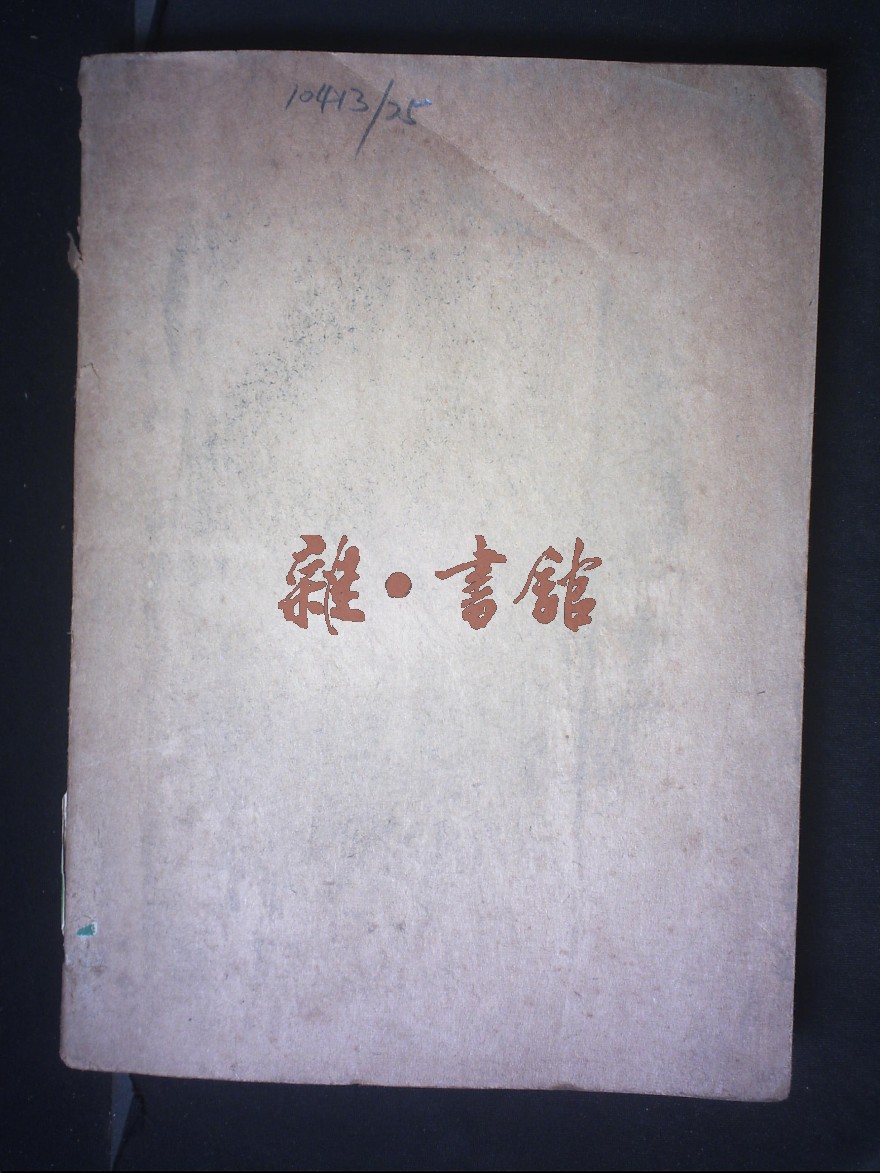 10413/25
雜·書館